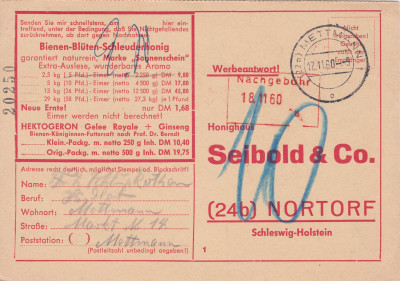 Senden Sie mir schnellstens, am hier ein-
treffend, unter der Bedingung, daß Sie Nichtgefallendes
zurücknehmen, ab dort gegen Nachnahme:
Bienen-Blüten-Schleuderhonig
garantiert naturrein, Marke „Sonnenschein"
Extra-Auslese, wunderbares Aroma
2,5 kg (5 Pfd.) Eimer netto 2 250 g DM 9,00
5 kg (10 Pfd.) - Eimer netto g DM 17,80
13 kg (26 Pfd.) - Eimer netto 12 500 g DM
29 kg (58 Pfd.) - Eimer netto 27,3 kg je 1 Pfund
Neue Ernte! nur DM 1,68
Eimer werden nicht berechnet!
HEKTOGERON Gelee Royale + Ginseng
Bienen-Königinnen-Futtersaft nach Prof. Dr. Berndt
Klein.-Packg. m. netto 250 g Inh. DM 10,40
Orig.-Packg. m. netto 500 g Inh. DM 19,75
20250
Adresse recht deutlich, möglichst Stempel od. Blockschrift!
Name:
Beruf:
Wohnort: Mettmann
Straße: Markt 14
Poststation: ( ) Mettmann
(Postleitzahl unbedingt angeben!)
METTMANN
17.11.60
Werbeantwort!
Nachgebühr
18/11 60
Honighaus
Seibold & Co.
10
(24b) NORTORF
Schleswig-Holstein
1